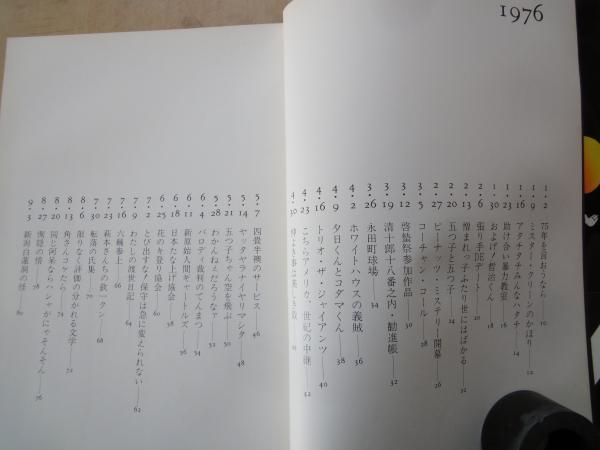 1976
1・2 75年を言おうなら——10
1・9 ミスター・クリーンのかほり——12
1・16 アタチアタチみんなアタチ——14
1・23 助け合い暴力教室——16
1・30 およげ!哲治くん——18
2・6 張り手DEデート——20
2・13 憎まれっ子ふたり世にはばかる——22
2・20 五つ子と五つ子——24
2・27 ピーナッツ・ミステリー開幕——26
3・5 コーチャン・コール——28
3・12 啓蟄祭参加作品——30
3・19 清十郎十八番之内・勧進帳——32
3・26 永田町球場——34
4・2 ホワイトハウスの義賊——36
4・9 夕日くんとコダマくん——38
4・16 トリオ・ザ・ジャイアンツ——40
4・23 こちらアメリカ、世紀の中継——42
4・30 仲よき事は美しき哉——44
5・7 四畳半襖のサービス——46
5・14 ヤッタヤラナイヤリマシタ——48
5・21 五つ子ちゃん空を飛ぶ——50
5・28 わかんねえだろうなァ——52
6・4 パロディ裁判のてんまつ——54
6・11 新原始人間ギャートルズ——56
6・18 日本たな上げ協会——58
6・25 花の木登り協会——60
7・2 とび出すな!保守は急に変えられない——62
7・9 わたしの渡世日記——64
7・16 六輔参上——66
7・23 萩本さんちの欽一クン——68
7・30 転落の氏集——70
8・6 限りなく評価の分かれる文字——72
8・13 角さんコケたら——74
8・20 同と何呆ならハシャがにゃそんそん——76
8・27 惻隠の情——78
9・3 新潟白蓮洞の怪——80